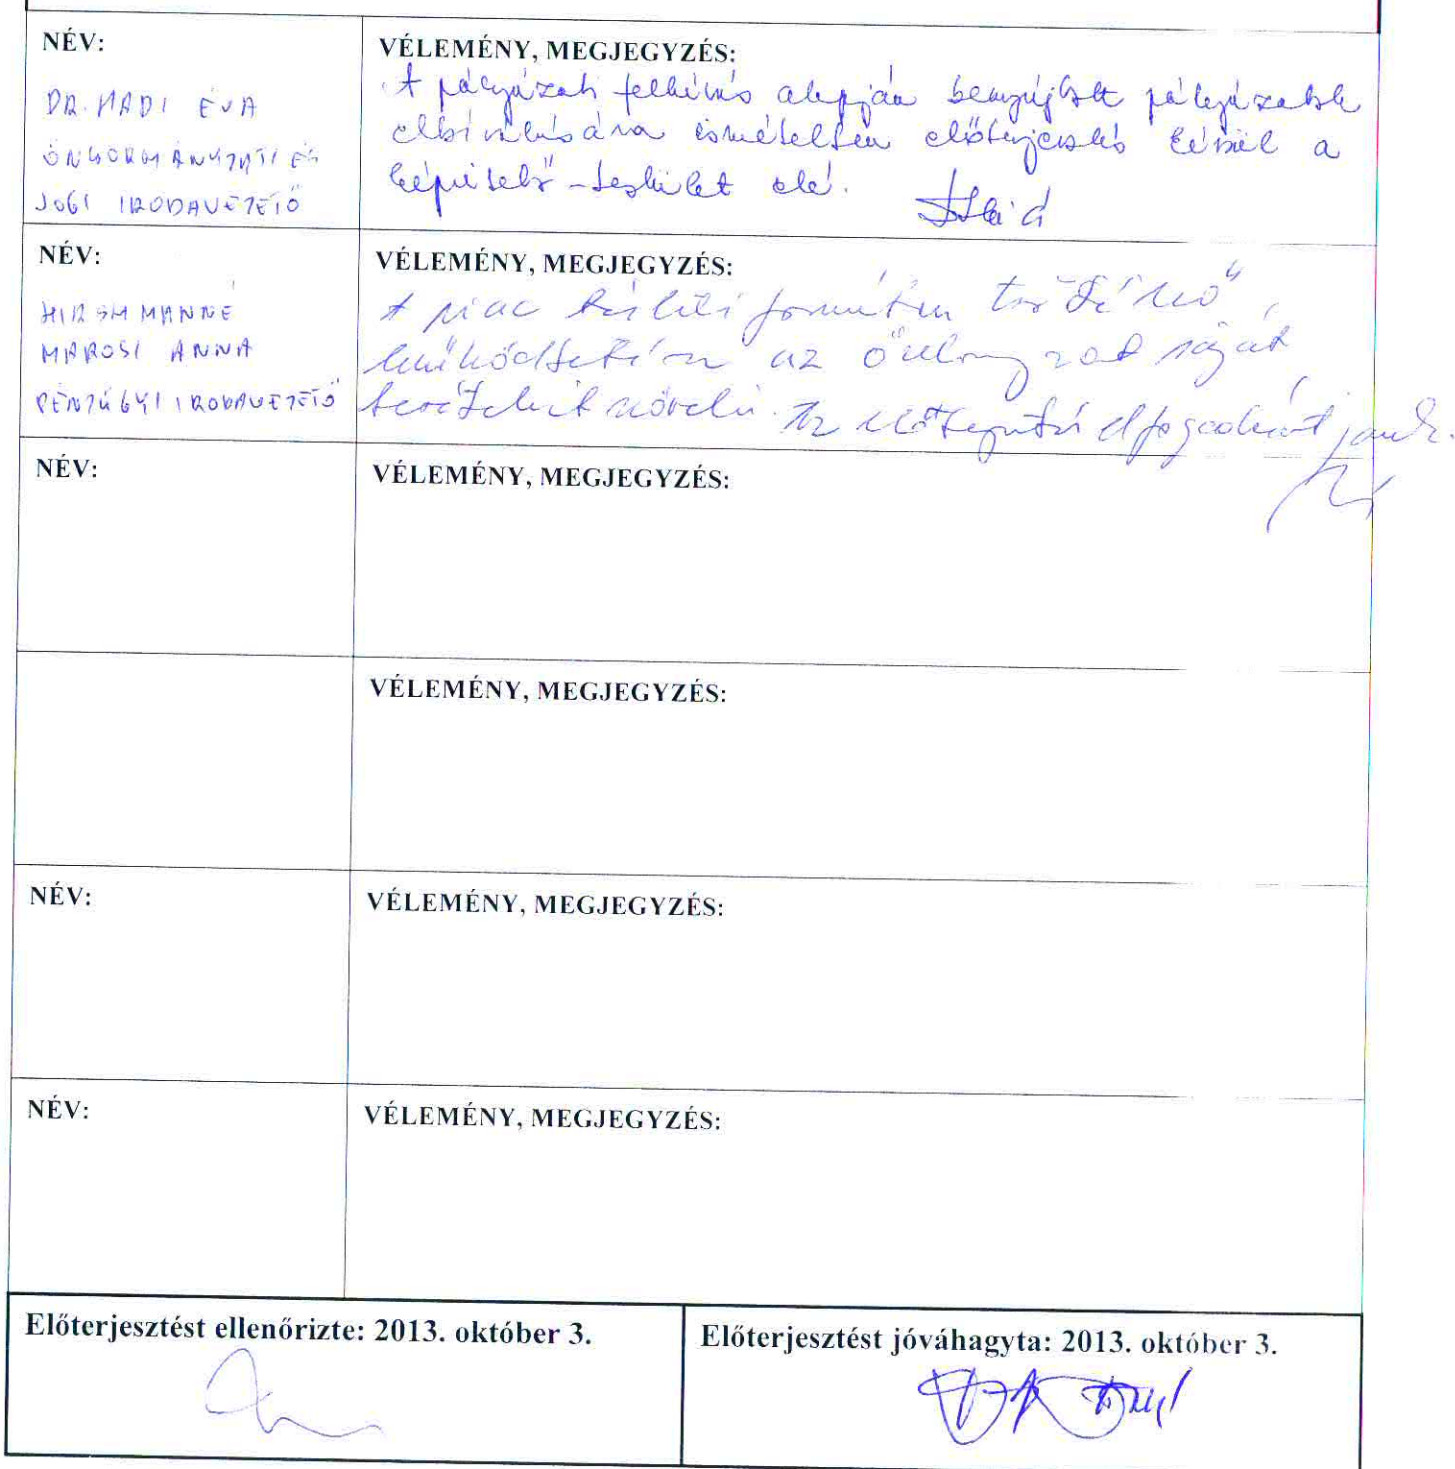 NÉV:
DR. MÁDI ÉVA
ÖNKORMÁNYZATI ÉS
JOGI IRODAVEZETŐ
VÉLEMÉNY, MEGJEGYZÉS:
A pályázati felhívás alapján benyújtott pályázatok
elbírálására ismételten előterjesztés készül a
képviselő-testület elé.
NÉV:
HIRSHMANNÉ
MAROSI ANNA
PÉNZÜGYI IRODAVEZETŐ
VÉLEMÉNY, MEGJEGYZÉS:
A piac bérleti formában történő
működtetése az önkormányzat saját
bevételeit növeli. Az előterjesztés elfogadását
NÉV:
VÉLEMÉNY, MEGJEGYZÉS:
VÉLEMÉNY, MEGJEGYZÉS:
NÉV:
VÉLEMÉNY, MEGJEGYZÉS:
NÉV:
VÉLEMÉNY, MEGJEGYZÉS:
Előterjesztést ellenőrizte: 2013. október 3.
Előterjesztést jóváhagyta: 2013. október 3.